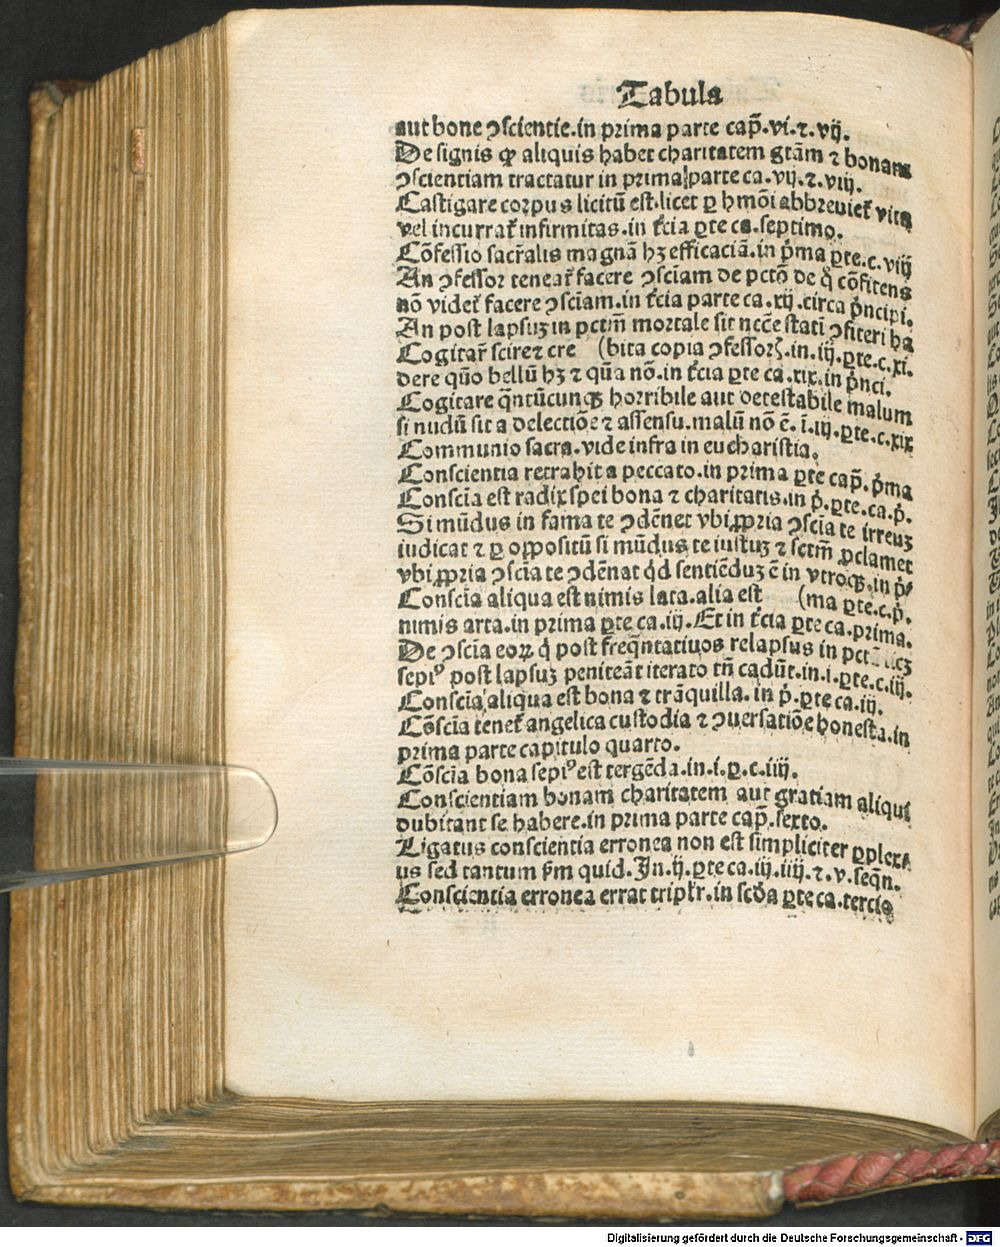 Tabula
aut bone ↄscientie.in prima parte cap̄.vi.⁊.vij.
De signis ꝙ aliquis habet charitatem gr̄am ⁊ bonam
ↄscientiam tractatur in prima parte ca.vij.⁊.viij.
Castigare corpus licitū est.licet ꝑ hmōi abbreuiet᷑ vita
vel incurrat᷑ infirmitas.in t᷑cia ꝑte ca.septimo.
Cōfessio sacr̄alis magnā hꝫ efficaciā.in p̄ma ꝑte.c.viij
An ↄfessor teneat᷑ facere ↄsciam de pctō de q̄ cōfitens
nō videt᷑ facere ↄsciam.in t᷑cia parte ca.xij.circa p̄ncipi.
An post lapsuꝫ in pctm̄ mortale sit ncc̄e statī ↄfiteri ha
Cogitar̄ scire ⁊ cre (bita copia ↄfessorꝝ.in.iij.ꝑte.c.xi.
dere qūo bellū hꝫ ⁊ qūa nō.in t᷑cia ꝑte ca.xix.in p̄nci.
Cogitare q̄ntūcunqꝫ horribile aut detestabile malum
si nudū sit a delectiōe ⁊ assensu.malū nō ē.ī.iij.ꝑte.c.xix
Communio sacra.vide infra in eucharistia.
Conscientia retrahit a peccato.in prima ꝑte cap̄.p̄ma
Consciā est radix spei bona ⁊ charitatis.in p̄.ꝑte.ca.p̄.
Si mūdus in fama te ↄdēnet vbi ꝓpria ↄsciā te irreuꝫ
iudicat ⁊ ꝑ oppositū si mūdus te iustuꝫ ⁊ sctm̄ ꝓclamet
vbi ꝓpria ↄsciā te ↄdēnat qd̄ sentiēduꝫ ē in vtroqꝫ.in p̄
Consciā aliqua est nimis lata.alia est (ma ꝑte.c.p̄.
nimis arta.in prima ꝑte ca.iij.Et in t᷑cia ꝑte ca.prima.
De ↄsciā eoꝝ q̄ post freq̄ntatiuos relapsus in
sepiꝰ post lapsuꝫ peniteāt iterato tn̄ cadūt.in.i.ꝑte.c.iij.
Consciā aliqua est bona ⁊ trāquilla.in p̄.ꝑte ca.iij.
Cōsciā tenet᷑ angelica custodia ⁊ ↄuersatiōe honesta.in
prima parte capitulo quarto.
Cōsciā bona sepiꝰ est tergēda.in.i.ꝑ.c.iiij.
Conscientiam bonam charitatem aut gratiam aliqui
dubitant se habere.in prima parte cap̄.sexto.
Ligatus conscientia erronea non est simpliciter ꝑplex
us sed tantum s̄m quid.In.ij.ꝑte ca.iij.iiij.⁊.v.seqn̄.
Conscientia erronea errat triplr̄.in scd̄a ꝑte ca.tercio
Digitalisierung gefördert durch die Deutsche Forschungsgemeinschaft - DFG